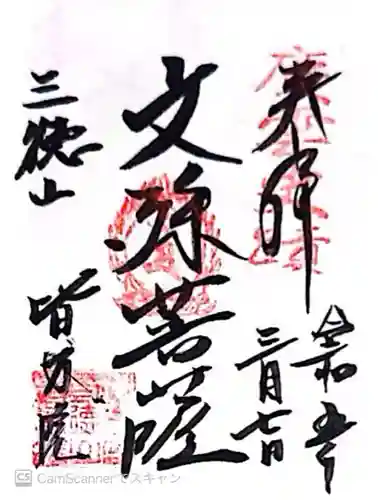 奉拝
令和五年
三月七日
文殊菩薩
三徳山
皆成院
CamScanner でスキャン